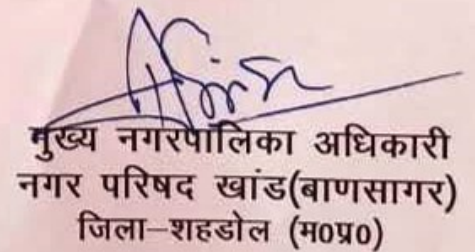 मुख्य नगरपालिका अधिकारी
नगर परिषद खांड(बाणसागर)
जिला-शहडोल (म0प्र0)